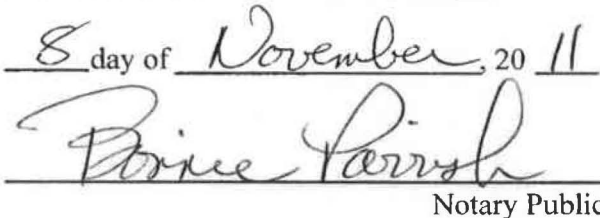 8 day of November, 20 11
Bonnie Parrish
Notary Public